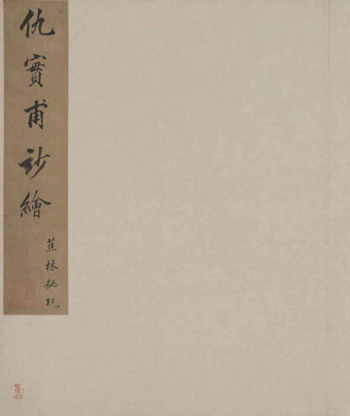 仇實甫妙繪
蕉林秘玩